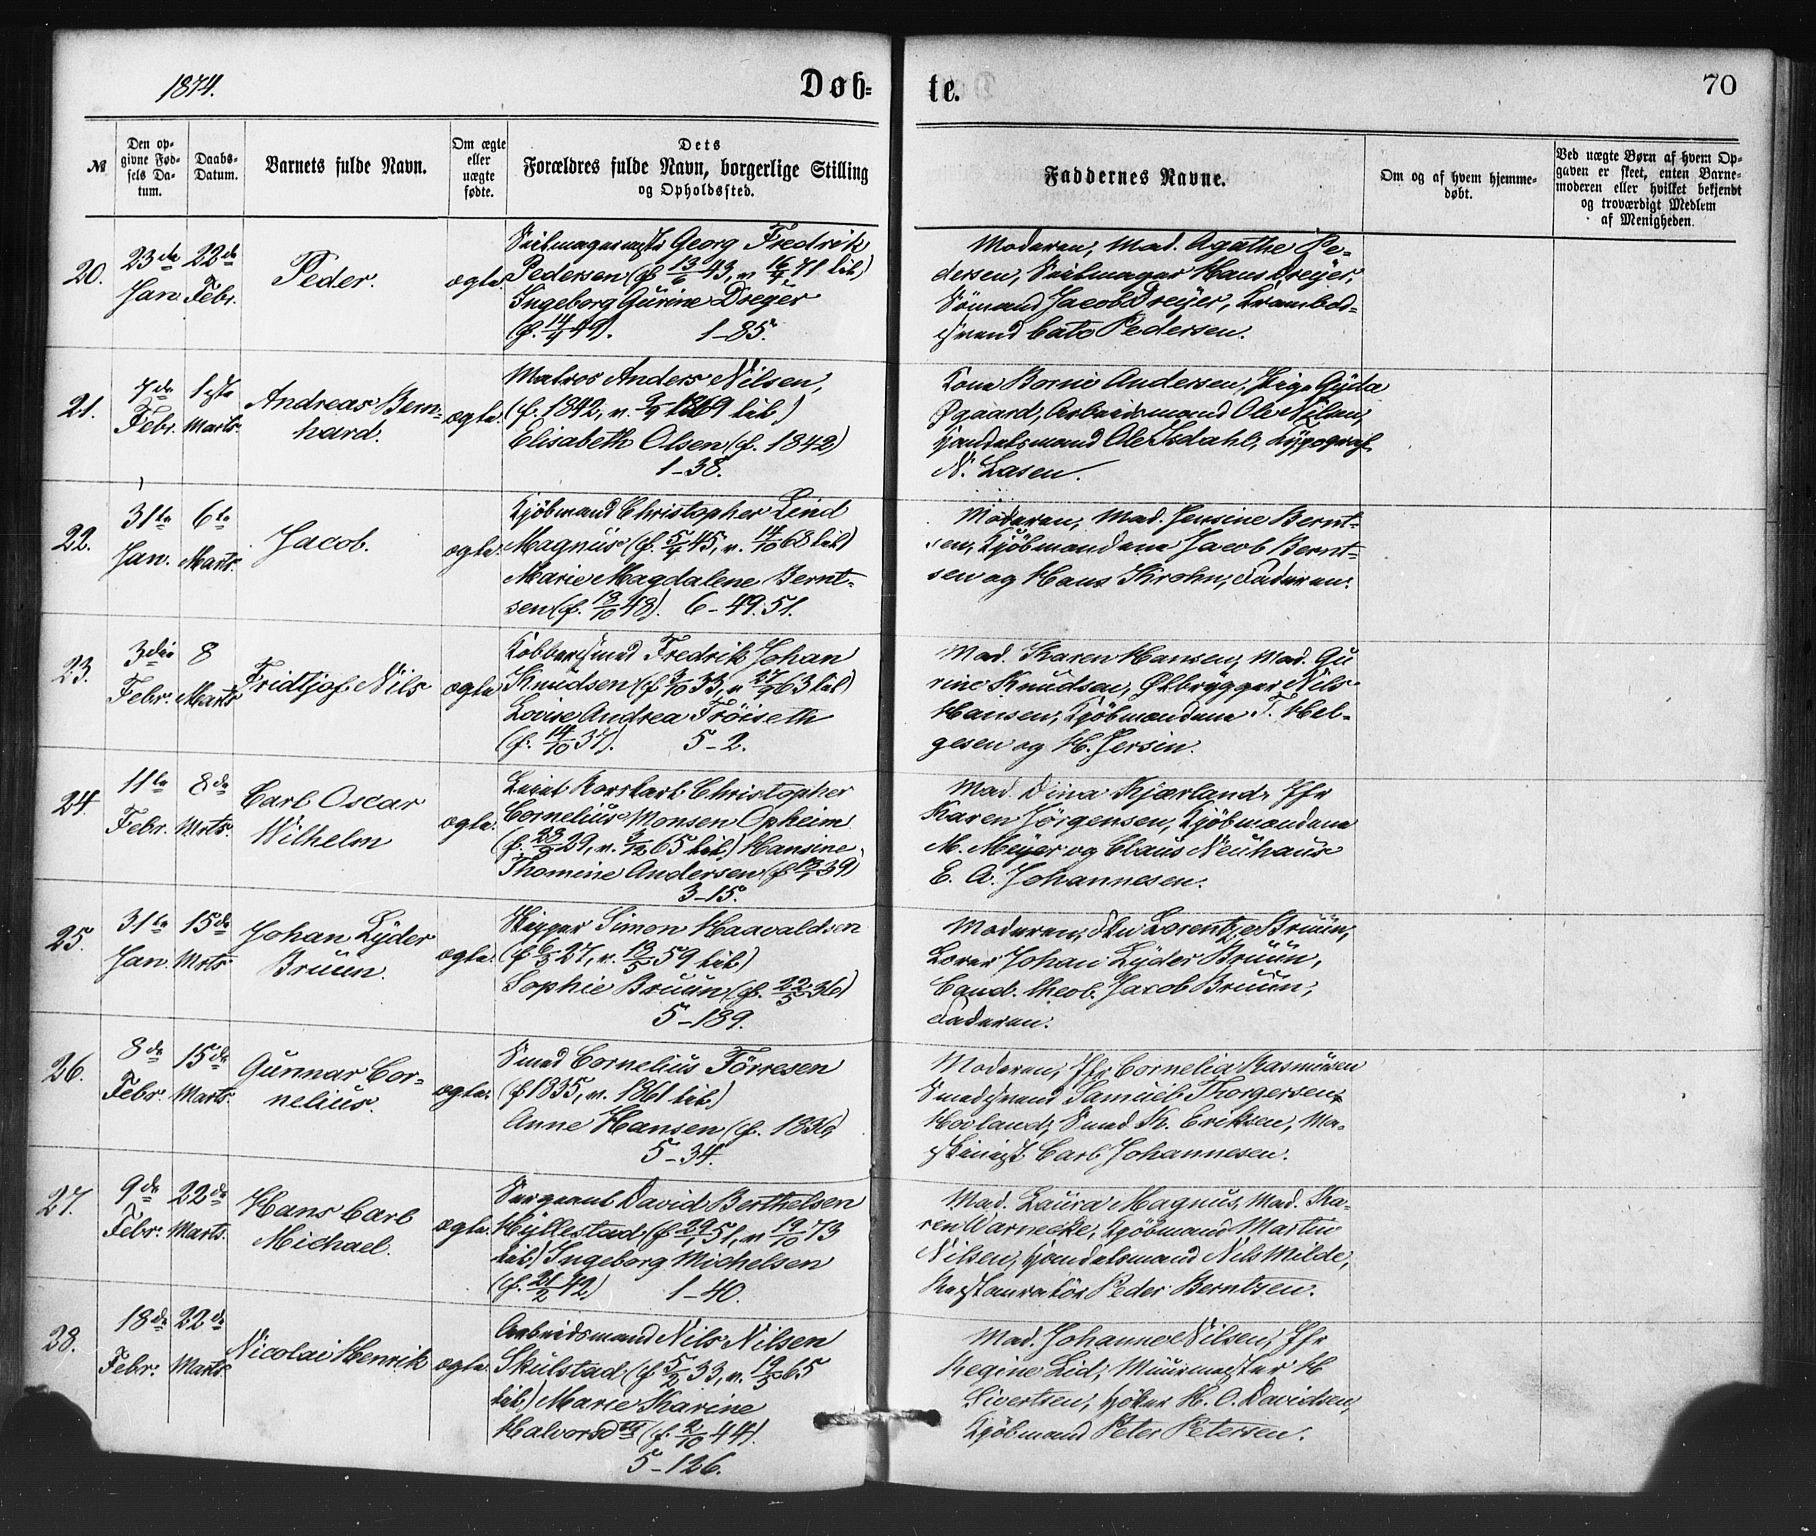 1874.
Døb-
te.
70
№
Den op-
givne Fød-
sels Da-
tum.
Daabs-
Datum.
Barnets fulde Navn.
Om ægte
eller
uægte
fødte.
Dets
Forældres fulde Navn, borgerlige Stilling
og Opholdssted.
Faddernes Navne.
Om og af hvem hjemme-
døbt.
Ved uægte Børn af hvem Op-
gaven er skeet, enten Barne-
moderen eller hvilket bekjendt
og troværdigt Medlem
af Menigheden.
20.
23de
Jan
22de
Febr.
Peder.
ægte.
Seilmagermester Georg Fredrik
Pedersen (f 13/6 43, v 16/7 71 lib)
Ingeborg Gurine Dreyer
(f. 14/9 49). 1-85.
Moderen, Mad. Agathe Pe-
dersen, Seilmager Hans Dreyer,
Sømand Jacob Dreyer, Krambod-
svend Cato Pedersen.
21.
7de
Febr.
1ste
Marts.
Andreas Bern-
hard.
ægte.
Matros Anders Nilsen,
(f. 1842, v. 1869 lib)
Elisabeth Olsen (f. 1842)
1-38.
Kone Bornie Andersen, Pige Gyda
Øgaard, Arbeidsmand Ole Nilsen,
Handelsmand Ole Isdahl, Typograf
N. Lasen.
22.
31te
Jan.
6te
Marts.
Jacob.
ægte.
Kjøbmand Christopher Lind
Magnus (f. 5/4 45, v. 14/10 68 lib)
Marie Magdalene Bernt-
sen (f. 18/10 48). 6-49.51.
Moderen, Mad. Jensine Bernt-
sen, Kjøbmændene Jacob Bernt-
sen og Hans Krohn, Faderen.
23.
3die
Febr.
8
Marts
Fridtjof Nils
ægte
Kobbersmed Fredrik Johan
Knudsen (f 3/10 33, v 27/9 63 lib)
Lovise Andrea Frøiseth
(f. 14/10 37). 5-2.
Mad. Karen Hansen, Mad. Gu
rine Knudsen, Ølbrygger Nils
Hansen, Kjøbmændene T. Hel-
gesen og H. Jersin.
24.
11te
Febr.
8de
Mrts.
Carl Oscar
Wilhelm
ægte.
Christopher
Cornelius Monsen Opheim
(f. 23/9 29, v. 3/12 65 lib) Hansine
Thomine Andersen (f 13/7 39)
3-15.
Mad. Dina Kjærland, Jfr
Karen Jørgensen, Kjøbmændene
M. Meyer og Claus Neuhaus
E. A. Johannesen.
25.
31te
Jan.
15de
Mrts.
Johan Lyder
Bruun.
ægte.
Skipper Simon Haavaldsen
(f 6/3 27, v. 13/5 59 lib)
Sophie Bruun (f. 22/5 36)
5-189.
Moderen, Lorentze Bruun,
Lærer Johan Lyder Bruun,
Cand. theol. Jacob Bruun,
Faderen.
26.
8de
Febr.
15de
Marts.
Gunnar Cor-
nelius.
ægte.
Smed Cornelius Tørresen
(f 1835, v. 1861 lib.)
Anne Hansen (f. 1836)
5-34.
Moderen, Jfr Cornelia Rasmusen
Smedsvend Samuel Thorgersen
Hovland, Smed K. Eriksen, Ma-
skinist Carl Johannesen.
27.
9de
Febr.
22de
Marts.
Hans Carl
Michael.
ægte.
Sergeant David Berthelsen
Hyllestad (f 29/1 51, v 19/10 73
lib) Ingeborg Michelsen
(f. 21/2 42) 1-40.
Mad. Laura Magnus, Mad. Ka-
ren Warnecke, Kjøbmand Martin
Nilsen, Handelsmand Nils Milde,
Restauratør Peder Berntsen.
38.
18de
Febr.
22de
Marts.
Nicolai Henrik
ægte.
Arbeidsmand Nils Nilsen
Skulstad (f 5/2 33, v. 19/5 65
lib) Marie Karine
Halvorsd (f. 2/10 44).
5-126.
Mad. Johanne Nilsen, Jfr
Regine Lid, Muurmester H
Sivertsen, Høker H. O. Davidsen,
Kjøbmand Peter Petersen.